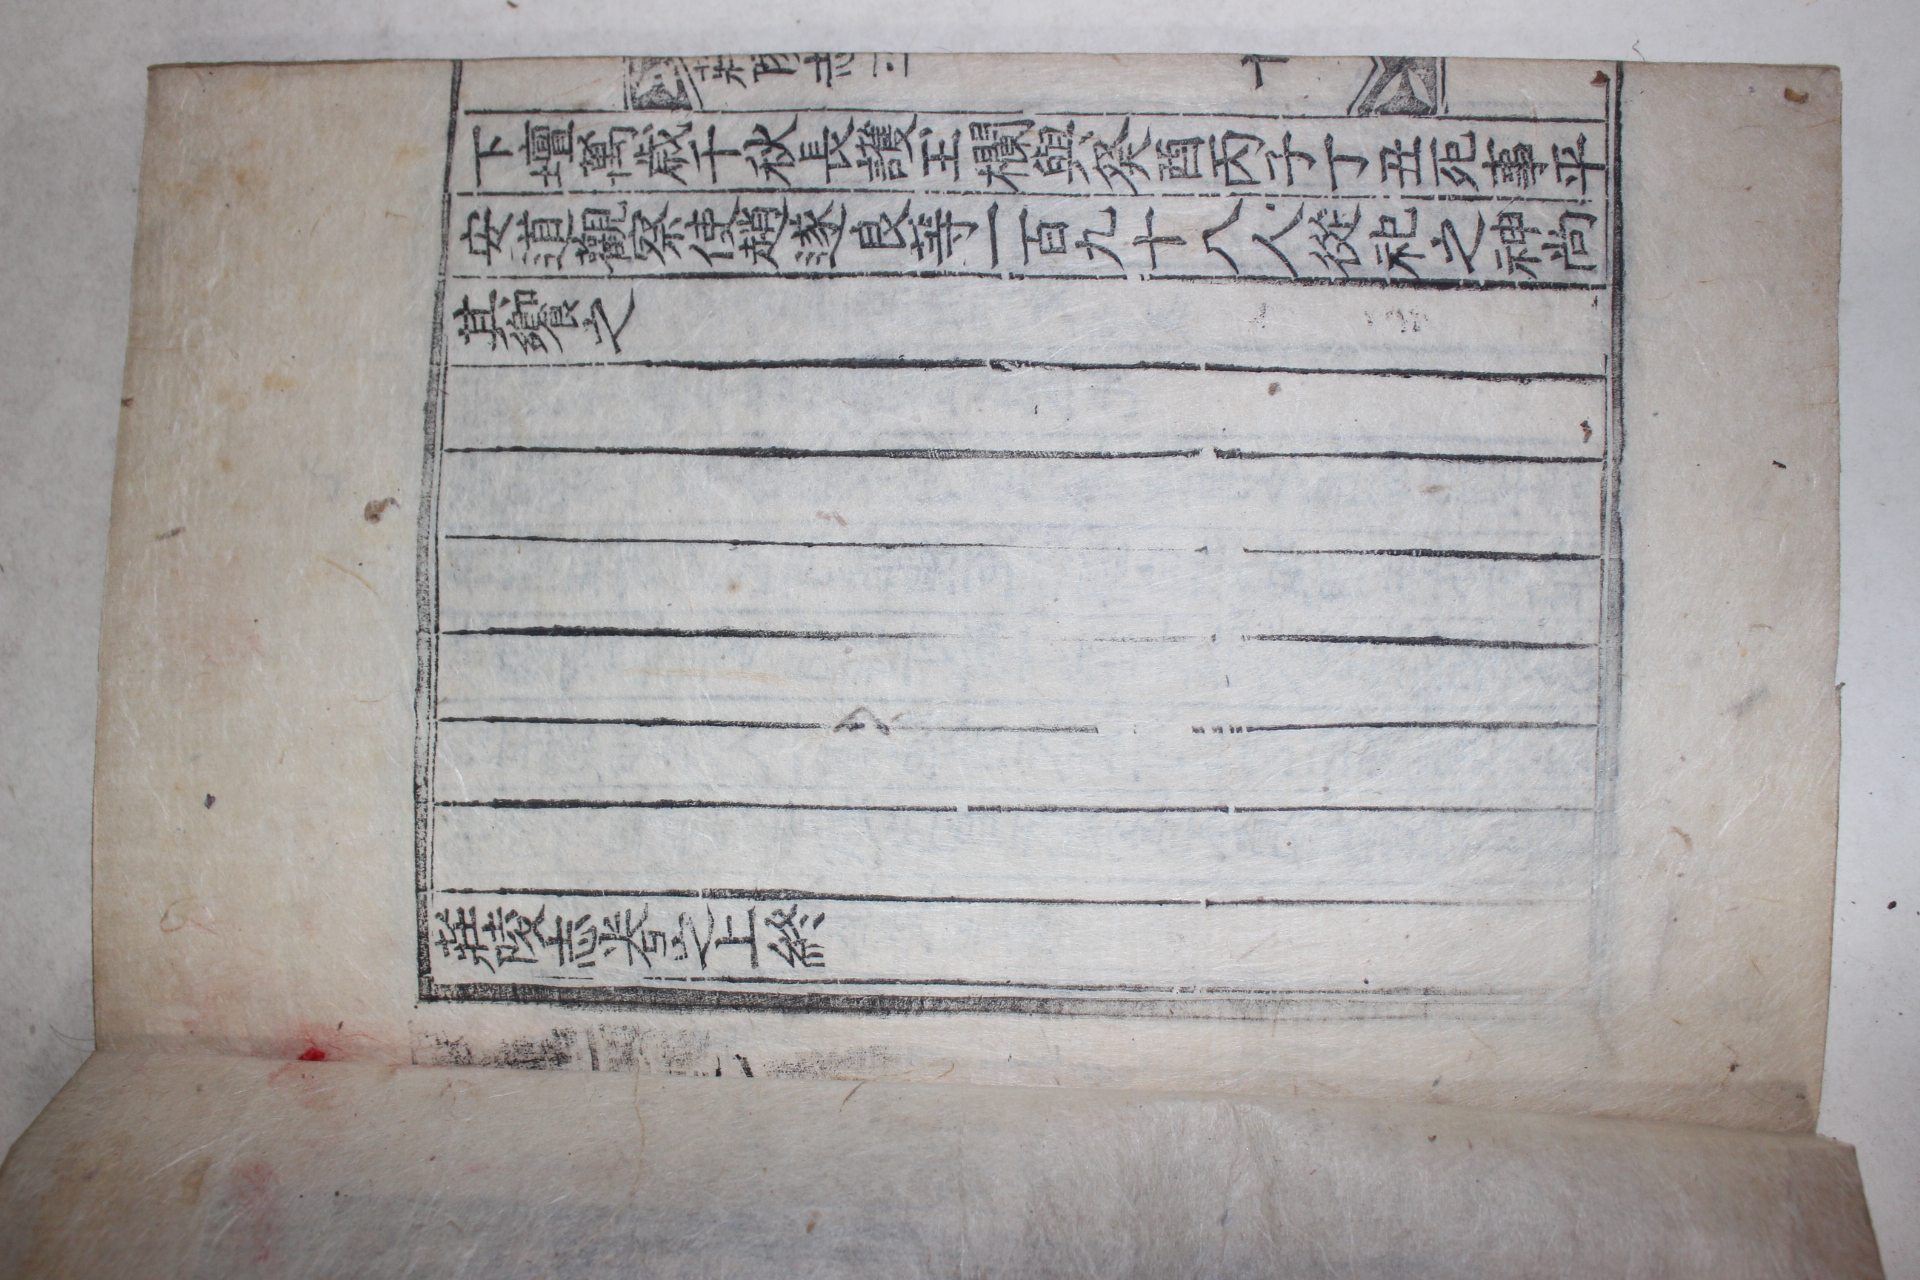 下壇萬歲千秋長護玉欄與癸酉丙子丁丑死事平
安道觀察使趙遂良等一百九十八人從祀之神尚
其饗之
莊陵志卷之上終
莊陵志